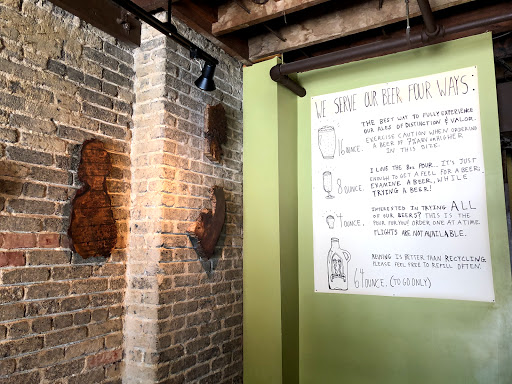 WE SERVE OUR BEER FOUR WAYS:
THE BEST WAY TO FULLY EXPERIENCE
OUR ALES OF DISTINCTION & VALOR.
EXERCISE CAUTION WHEN ORDERING
A BEER OF 7%ABV OR HIGHER
IN THIS SIZE.
16 OUNCE.
I LOVE THE 8oz POUR... IT'S JUST
ENOUGH TO GET A FEEL FOR A BEER,
EXAMINE A BEER, WHILE
TRYING A BEER!
8 OUNCE.
INTERESTED IN TRYING ALL
OF OUR BEERS? THIS IS THE
POUR FOR YOU! ORDER ONE AT A TIME.
FLIGHTS ARE NOT AVAILABLE.
4 OUNCE.
REUSING IS BETTER THAN RECYCLING.
PLEASE FEEL FREE TO REFILL OFTEN.
64 OUNCE. (TO GO ONLY)